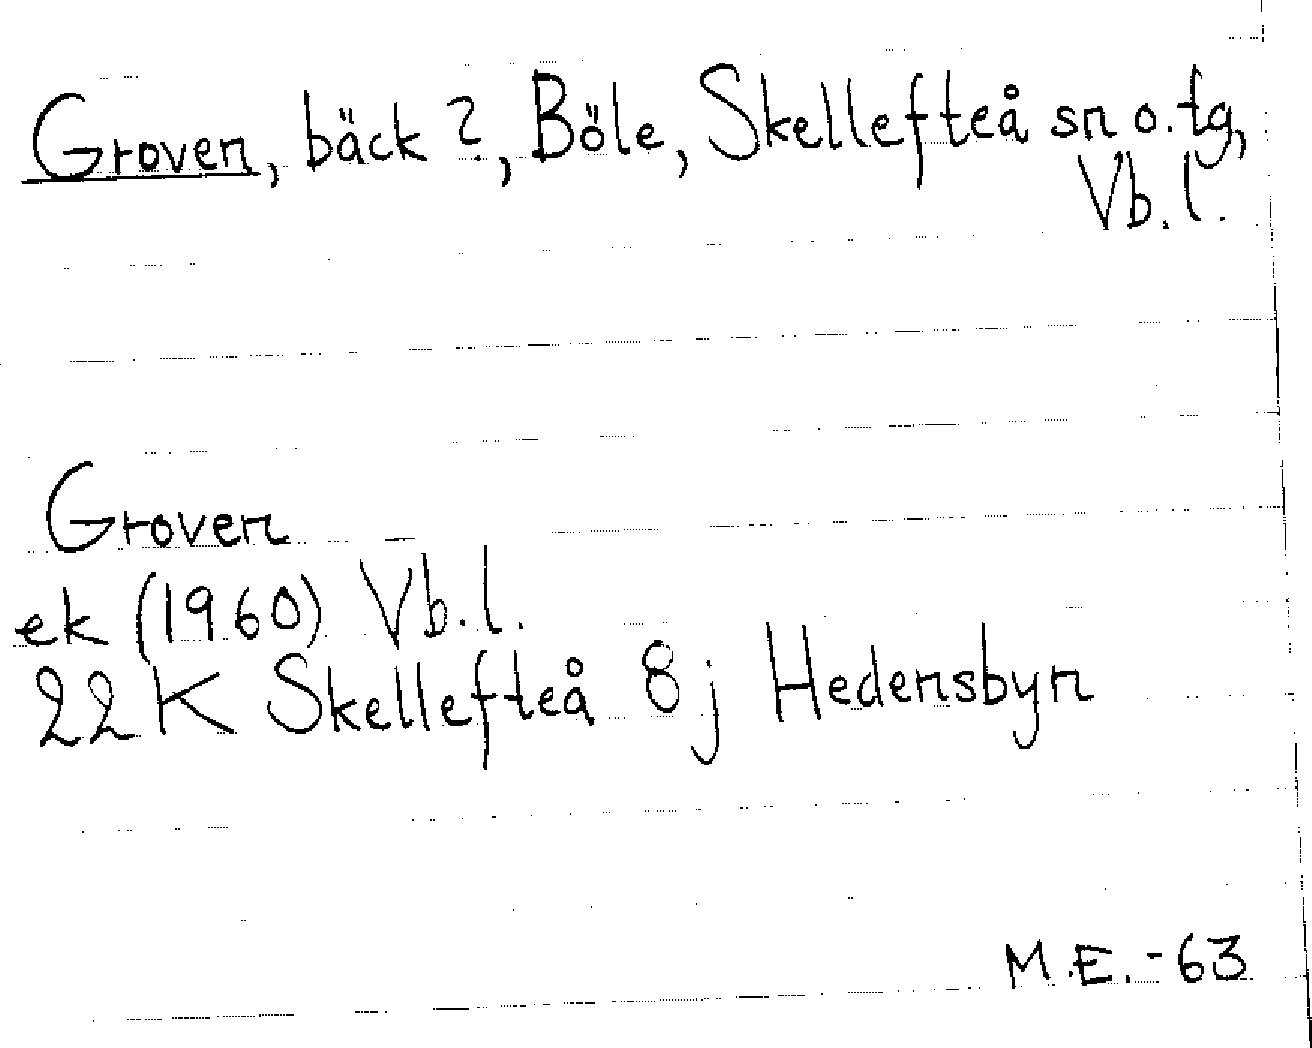 Groven, bäck ?, Böle, Skellefteå sn o. tg,
Vb. l.
Groven
ek (1960) Vb. l.
22 K Skellefteå 8 j Hedensbyn
M.E. -63